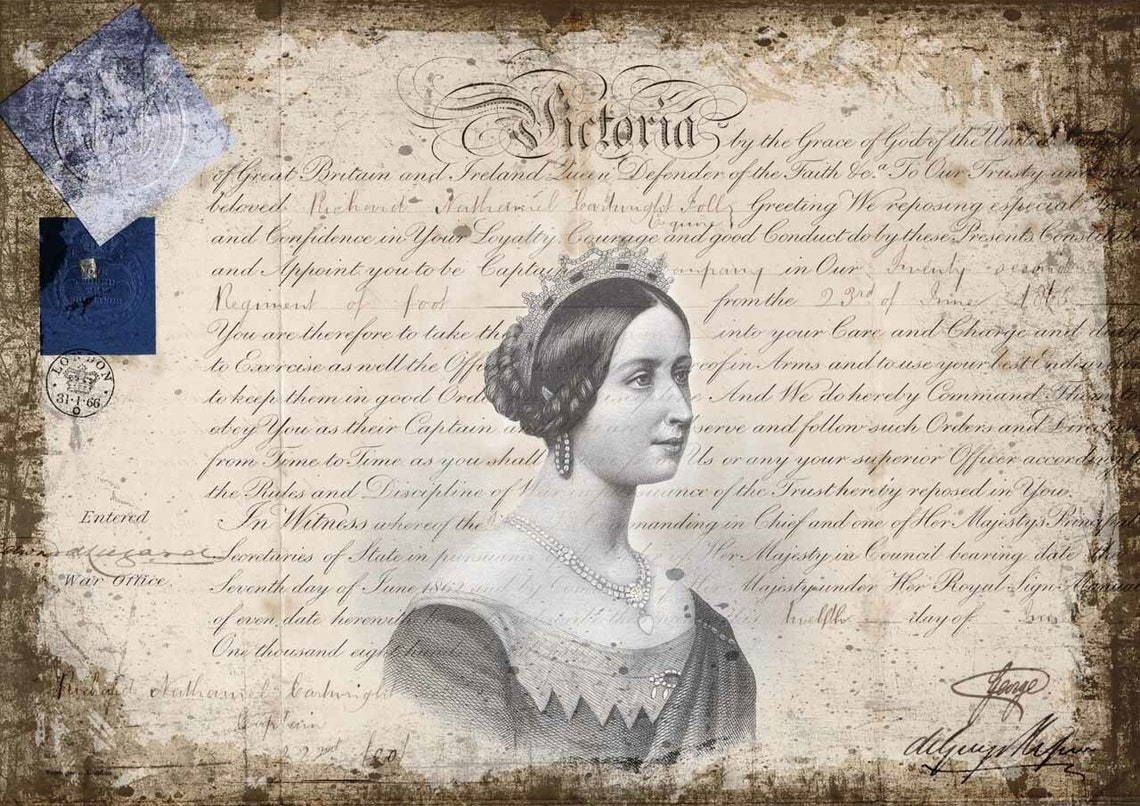 Victoria by the Grace of God of the United
of Great Britain and Ireland Queen Defender of the Faith &c.ª To Our Trusty and
beloved Richard Nathaniel Cartwright Foll Greeting We reposing especial
Esquire
and Confidence in Your Loyalty Courage and good Conduct do by these Presents Constitute
and Appoint you to be Captain Company in Our Twenty second
Regiment of foot from the 23rd of June
You are therefore to take th into your Care and Charge and duly
to Exercise as well the Offi eof in Arms and to use your best Endeavour
to keep them in good Ord And We do hereby Command Them to
obey You as their Captain a serve and follow such Orders and Direction
from Time to Time as you shall Us or any your superior Officer according
the Rules and Discipline of War in uance of the Trust hereby reposed in You.
In Witness whereof the manding in Chief and one of Her Majesty's Principal
Secretaries of State in pursuance of Her Majesty in Council bearing date the
Seventh day of June 1862 Majesty under Her Royal Sign Manual
of even date herewith twelfth day of June
One thousand eight hun
LONDON
31·1·66
Entered
War Office
Richard Nathaniel Cartwright
Captain
22nd foot
George